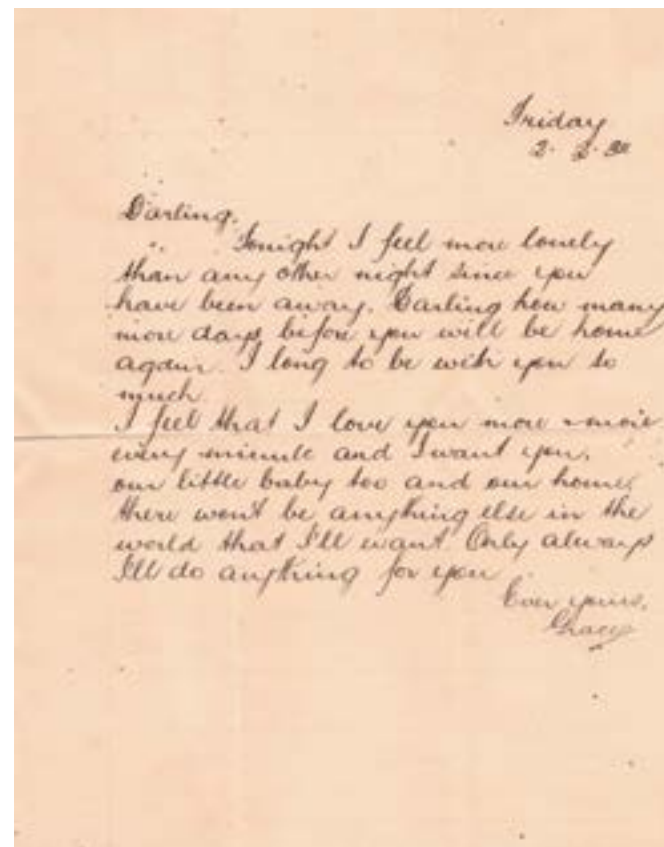 Friday
Darling,
Tonight I feel more lonely
than any other night since you
have been away. Darling how many
more days before you will be home
again. I long to be with you so
much.
I feel that I love you more & more
every minute and I want you,
our little baby too and our home,
there won't be anything else in the
world that I'll want. Only always
I'll do anything for you
Ever yours,